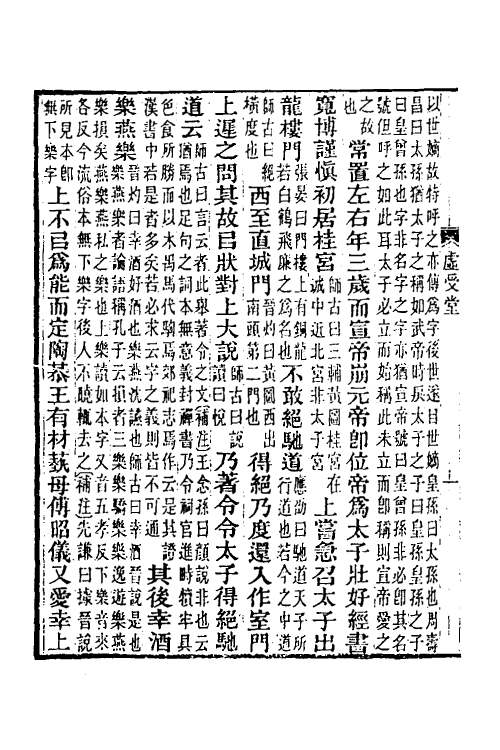 以世嫡故特呼之亦傳爲字後世遂曰世嫡皇孫曰太孫也周壽
昌曰太孫猶太子之稱如武帝時戾太子之子而曰皇孫皇孫之子
曰皇曾孫也字非名字之字亦猶宣帝號曰皇曾孫非必卽其名
號但呼之如此耳太子必立而始稱此未立而卽稱則宣帝愛之
之故
也
常置左右年三歲而宣帝崩元帝卽位帝爲太子壯好經書
寬博謹愼初居桂宮
師古曰三輔黃圖桂宮在
城中近北宮非太子宮
上嘗急召太子出
龍樓門
張晏曰門樓上有銅龍
若白鶴飛廉之爲名也
不敢絕馳道
應劭曰馳道天子所
行道也若今之中道
師古曰絕
橫度也
西至直城門
晉灼曰黃圖西出
南頭第二門也
得絕乃度還入作室門
上遲之問其故㠯狀對上大說
師古曰說
讀曰悅
乃著令令太子得絕馳
道云
師古曰言云者此舉著令之文補注王念孫曰顏說非也云
猶焉也足句之詞本無意義封禪書乃令祠官進畤犢牢具
色食所勝而以木禺馬代駒焉郊祀志焉作云是其證
漢書中若是者多矣若必求云字之義則皆不可通
其後幸酒
樂燕樂
晉灼曰幸酒好酒也樂燕沈讌也師古曰幸酒晉說是也
樂燕樂者論語稱孔子云損者三樂樂驕樂樂逸遊樂燕
樂損矣燕樂燕私之樂也上樂讀如本字又音五孝反下樂音來
各反今流俗本無下樂字後人不曉輒去之補注先謙曰據晉說
所見本卽
無下樂字
上不㠯爲能而定陶恭王有材蓺母傅昭儀又愛幸上
虛受堂